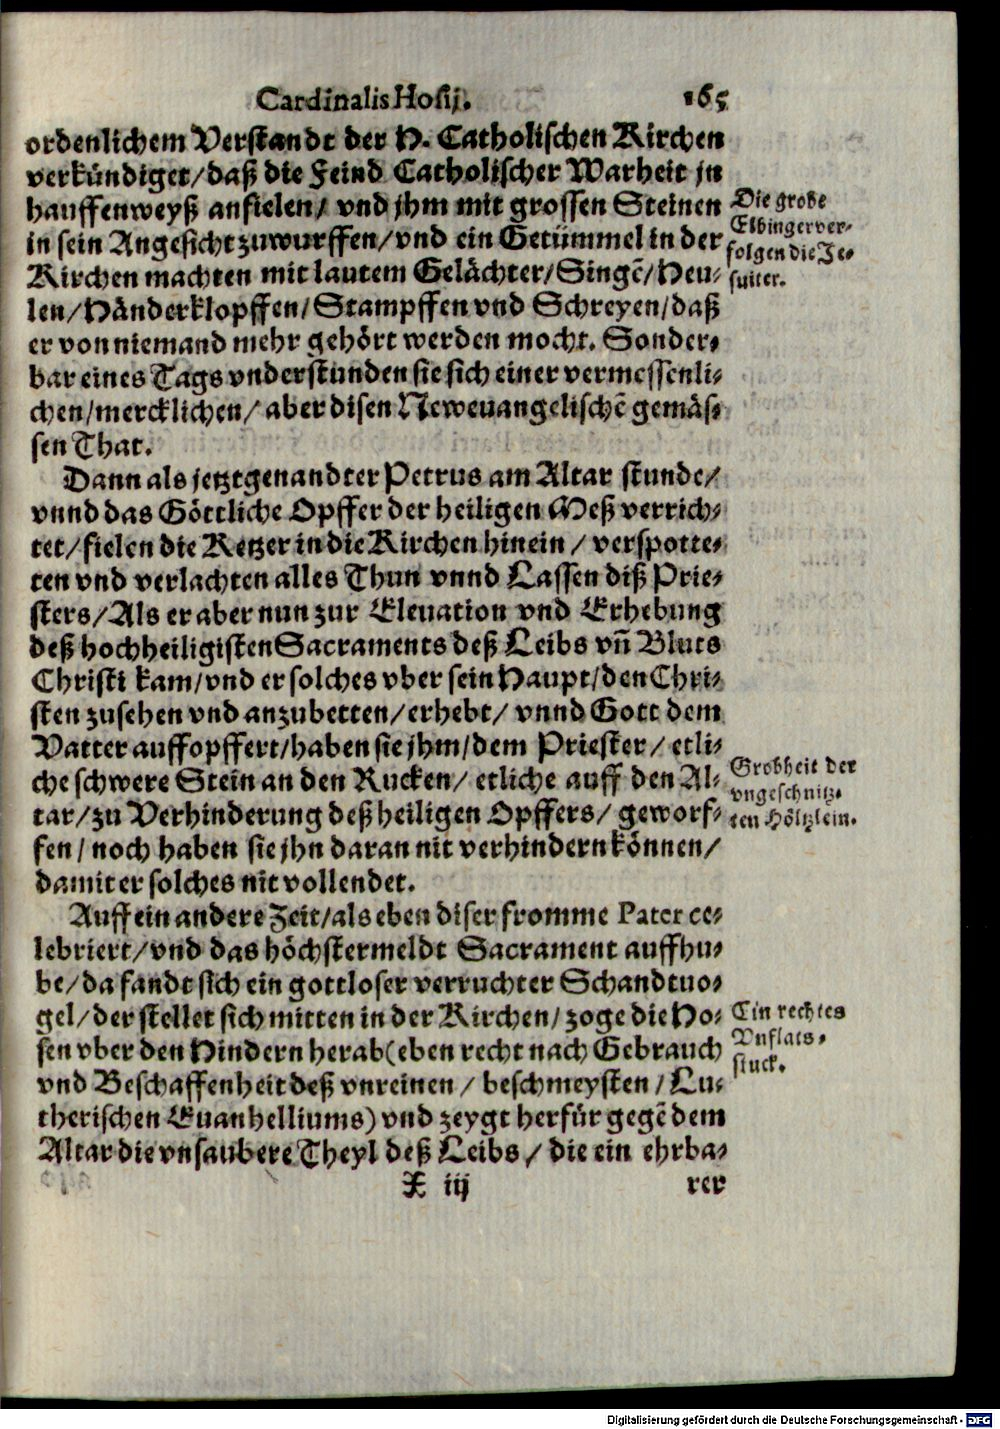 Cardinalis Hosij. 165
ordenlichem Verstandt der H. Catholischen Kirchen
verkündiget/ daß die Feind Catholischer Warheit jn
hauffenweyß anfielen/ vnd jhm mit grossen Steinen
in sein Angesicht zuwurffen/ vnd ein Getümmel in der
Kirchen machten mit lautem Gelächter/ Singē/ Heu-
len/ Händerklopffen/ Stampffen vnd Schreyen/ daß
er von niemand mehr gehört werden mocht. Sonder-
bar eines Tags vnderstunden sie sich einer vermessenli-
chen/ mercklichen/ aber disen Neweuangelischē gemäs-
sen That.
Die grobe
Elbinger ver-
folgen die Je-
suiter.
Dann als jetztgenandter Petrus am Altar stunde/
vnnd das Göttliche Opffer der heiligen Meß verrich-
tet/ fielen die Ketzer in die Kirchen hinein/ verspotte-
ten vnd verlachten alles Thun vnnd Lassen diß Prie-
sters/ Als er aber nun zur Eleuation vnd Erhebung
deß hochheiligisten Sacraments deß Leibs vñ Bluts
Christi kam/ vnd er solches vber sein Haupt/ den Chri-
sten zusehen vnd anzubetten/ erhebt/ vnnd Gott dem
Vatter auffopffert/ haben sie jhm/ dem Priester/ etli-
che schwere Stein an den Rucken/ etliche auff den Al-
tar/ zu Verhinderung deß heiligen Opffers/ geworf-
fen/ noch haben sie jhn daran nit verhindern können/
damit er solches nit vollendet.
Grobheit der
vngeschnitz-
ten Höltzlein.
Auff ein andere Zeit/ als eben diser fromme Pater ce-
lebriert/ vnd das höchstermeldt Sacrament auffhu-
be/ da fandt sich ein gottloser verruchter Schandtuo-
gel/ der stellet sich mitten in der Kirchen/ zoge die Ho-
sen vber den Hindern herab (eben recht nach Gebrauch
vnd Beschaffenheit deß vnreinen/ beschmeysten/ Lu-
therischen Euanhelliums) vnd zeygt herfür gegē dem
Altar die vnsaubere Theyl deß Leibs/ die ein ehrba-
Ein rechtes
Vnflats-
stuck.
X iij rer
Digitalisierung gefördert durch die Deutsche Forschungsgemeinschaft - DFG